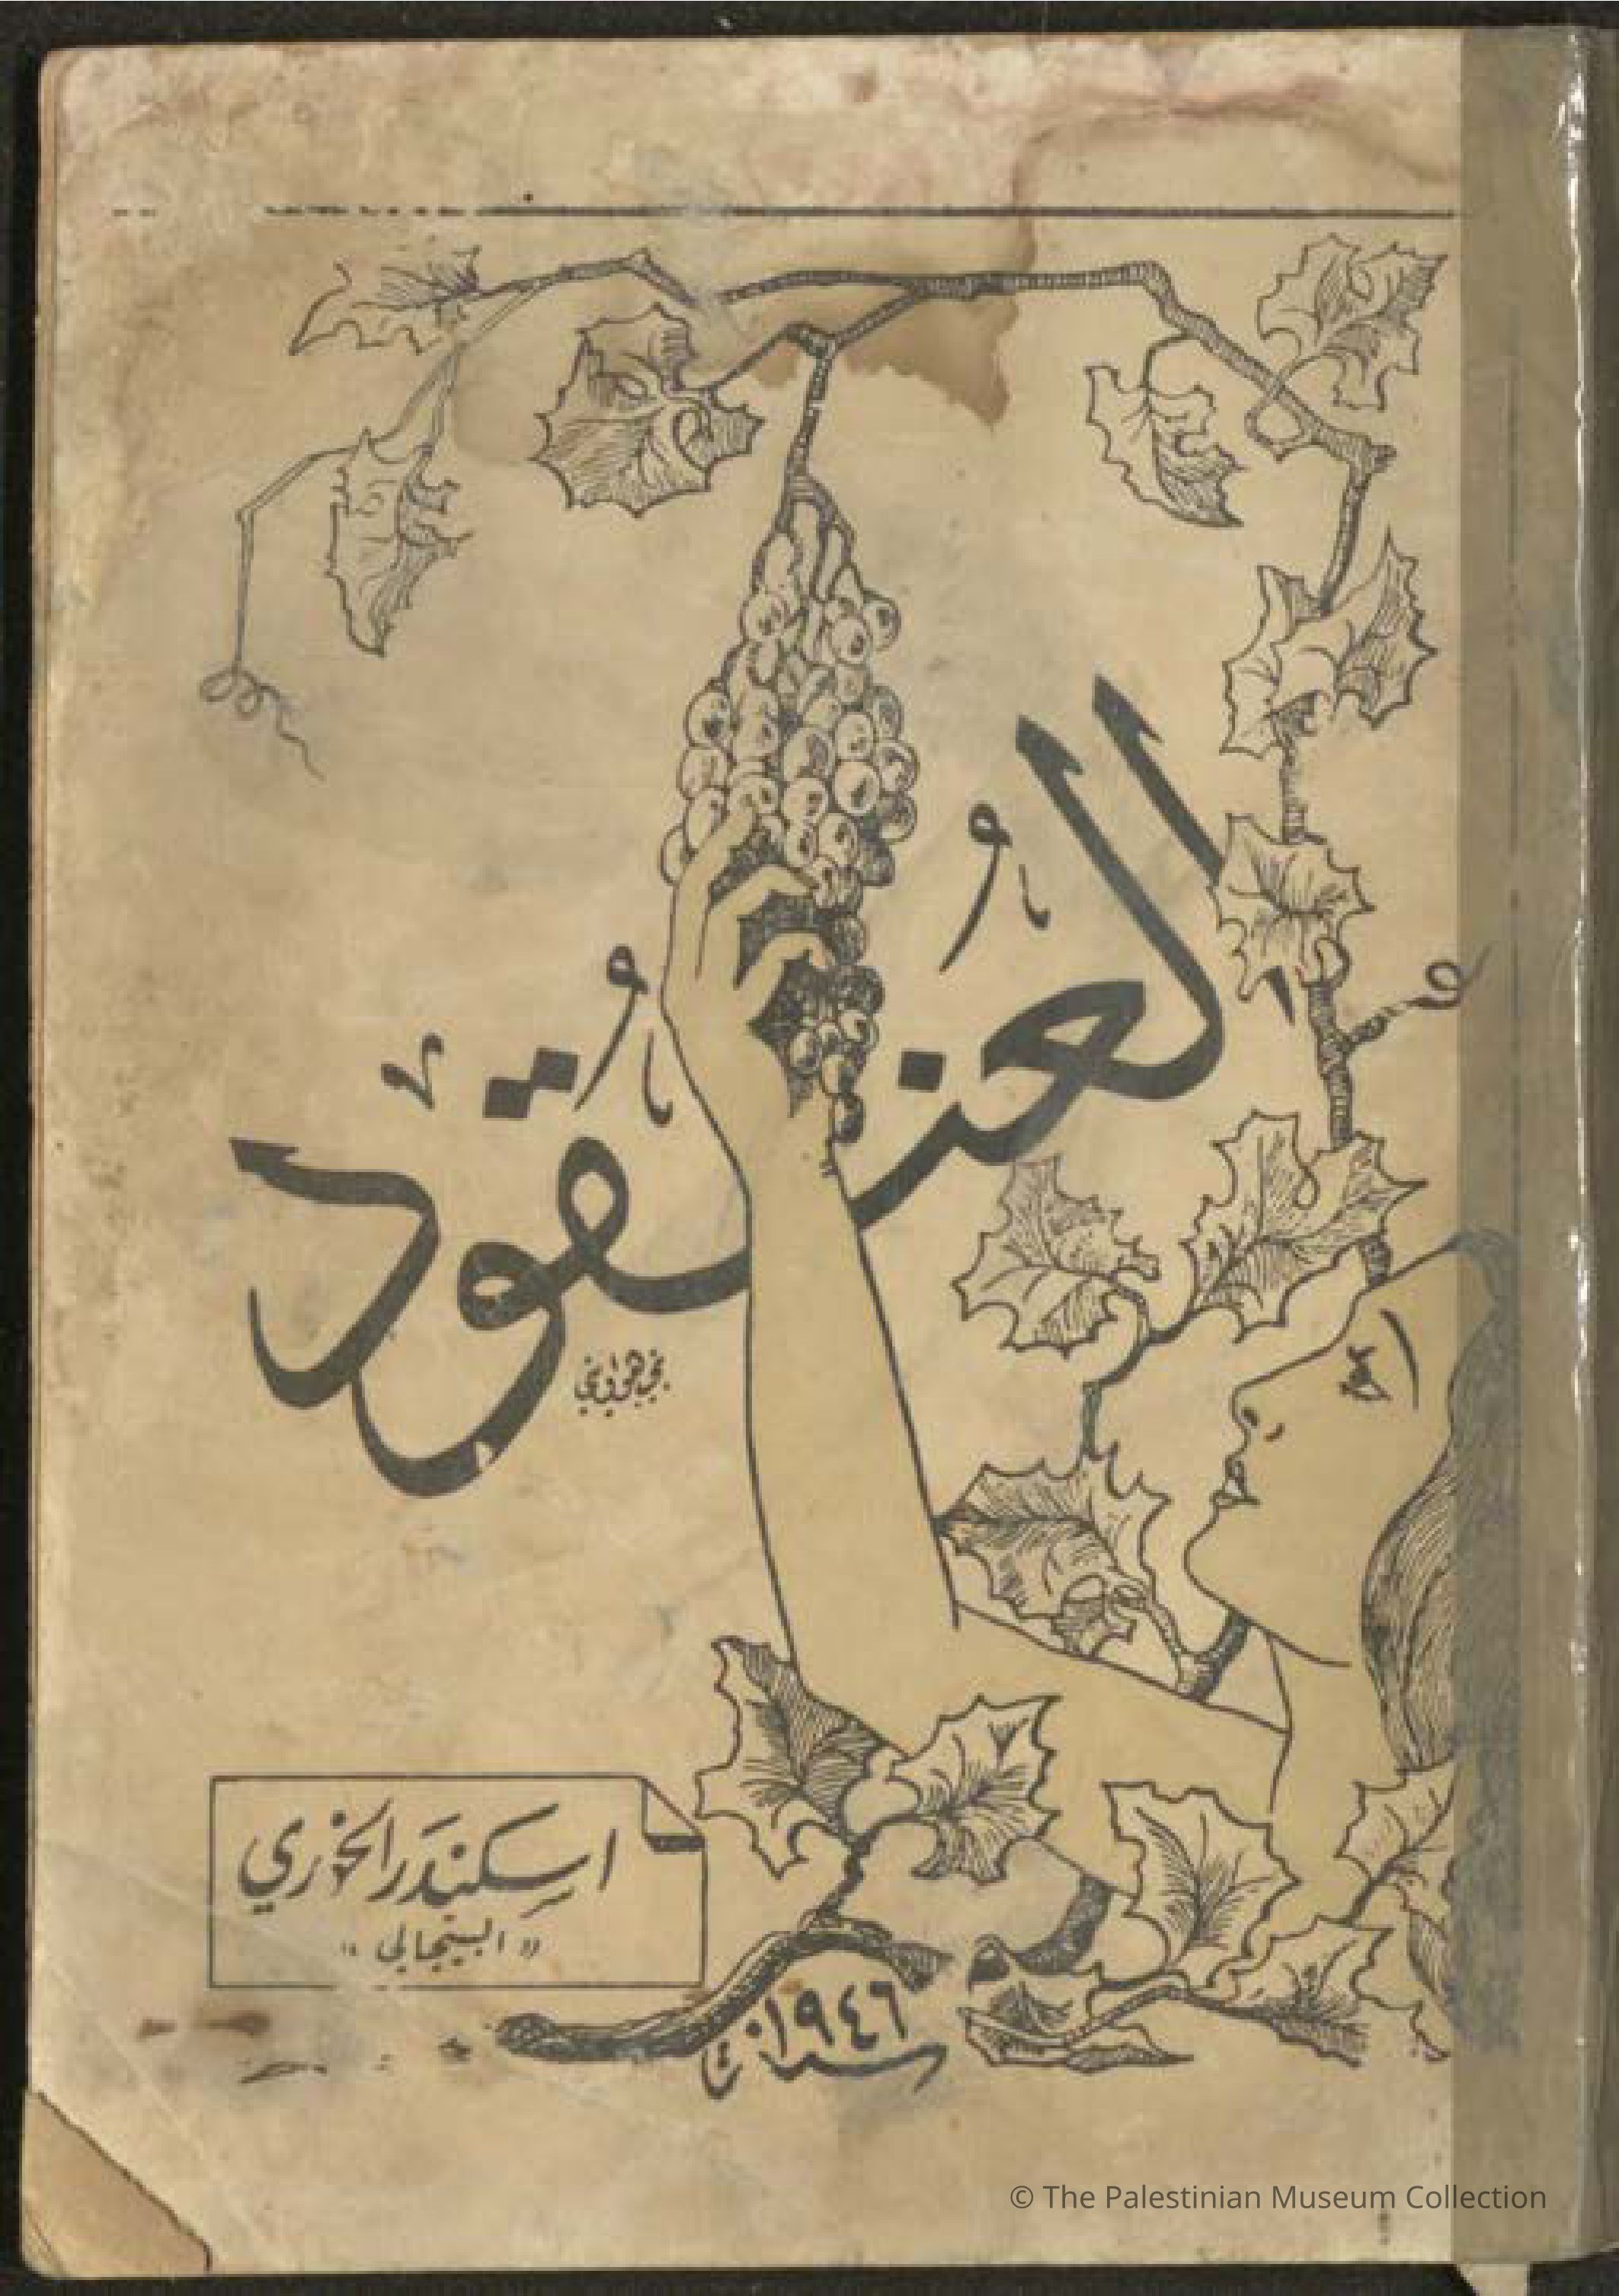 العُنْقُودْ
اسكندَر الخوري
« البيتجالي »
سنة ١٩٤٦
© The Palestinian Museum Collection